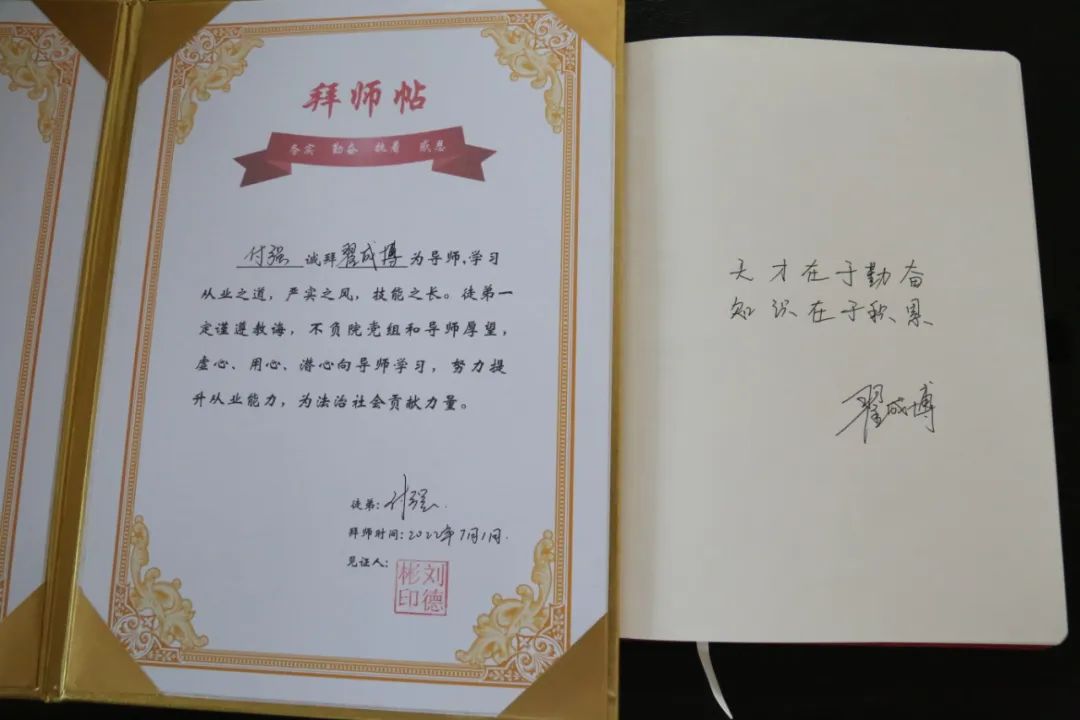 拜师帖
务实 勤奋 执着 感恩
付强 诚拜翟成博为导师,学习
从业之道，严实之风，技能之长。徒弟一
定谨遵教诲，不负院党组和导师厚望，
虚心、用心、潜心向导师学习，努力提
升从业能力，为法治社会贡献力量。
徒弟：付强
拜师时间：2022年7月1日.
见证人：
刘德彬印
天才在于勤奋
知识在于积累
翟成博